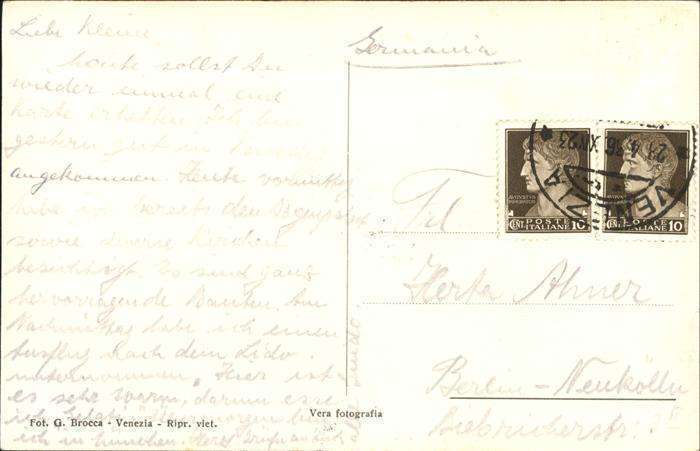 Liebe Kleine,
heute sollst Du
wieder einmal eine
Karte erhalten. Ich bin
gestern gut in Venedig
angekommen. Heute vormittag
habe ich bereits den
sowie diverse Kirchen
besichtigt. Es sind ganz
hervorragende Bauten. Am
Nachmittag habe ich einen
Ausflug nach dem Lido
unternommen. Hier ist
es sehr warm, darum esse
ich
ich in München. Herzl.
Guido
Germania
VENEZIA
21.4.36 XIV 23
POSTE ITALIANE
CENT. 10
POSTE ITALIANE
CENT. 10
Frl
Herta Ahner
Berlin-Neukölln
Fot. G. Brocca - Venezia - Ripr. viet.
Vera fotografia